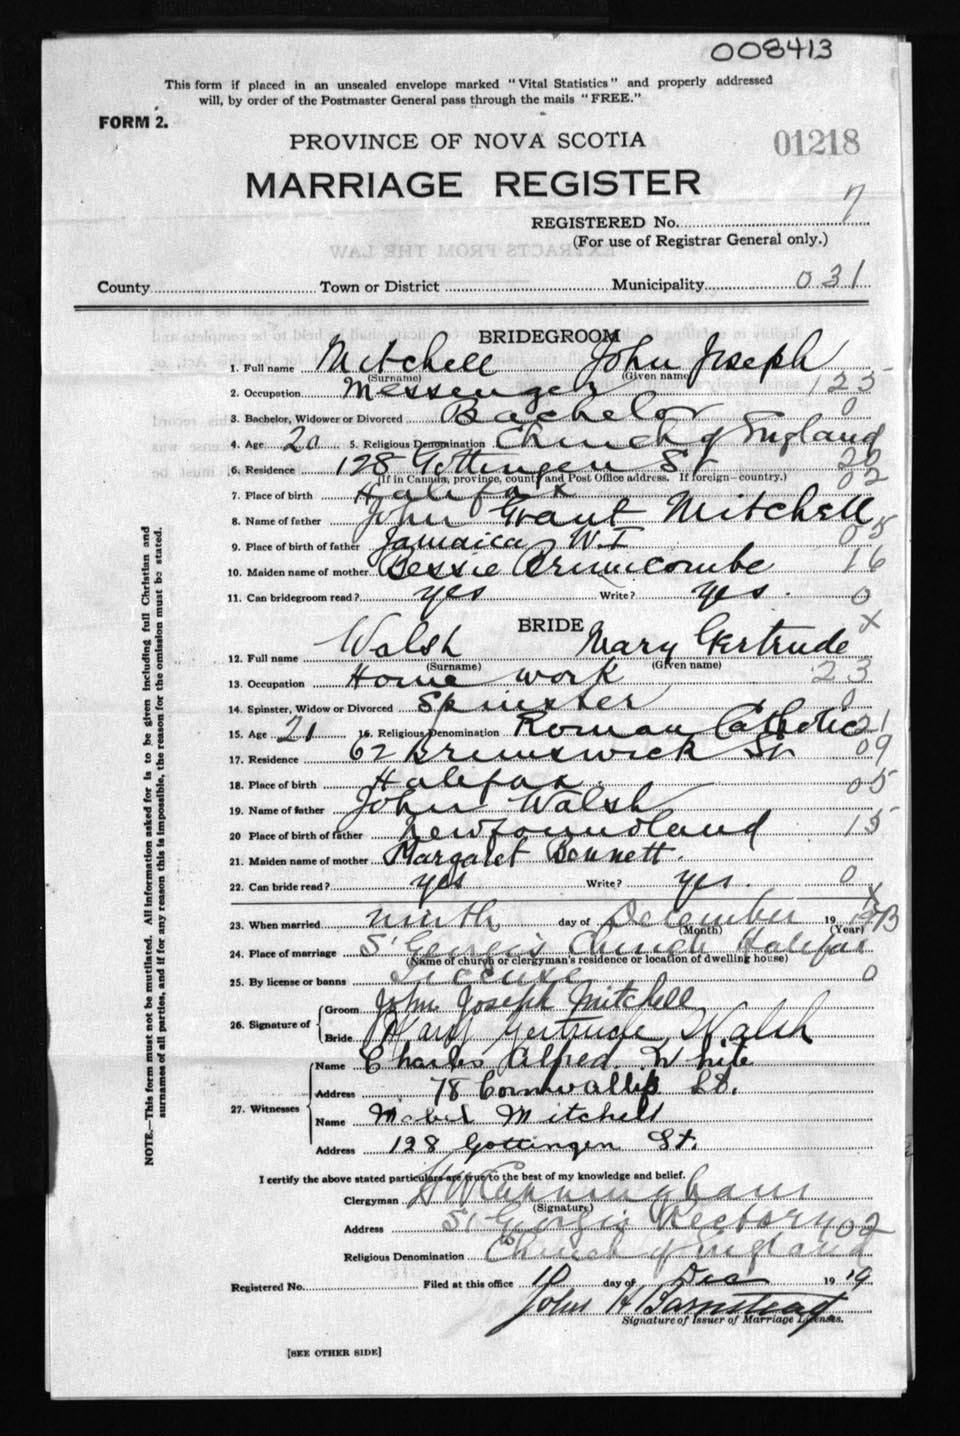 008413
This form if placed in an unsealed envelope marked "Vital Statistics" and properly addressed
will, by order of the Postmaster General pass through the mails "FREE."
FORM 2.
PROVINCE OF NOVA SCOTIA
01218
MARRIAGE REGISTER
REGISTERED No. 7
(For use of Registrar General only.)
County Town or District Municipality 031
BRIDEGROOM
1. Full name Mitchell John Joseph
(Surname) (Given name)
2. Occupation Messenger 125
3. Bachelor, Widower or Divorced Bachelor 0
4. Age 20 5. Religious Denomination Church of England
6. Residence 128 Gottingen St 20
(If in Canada, province, county and Post Office address. If foreign—country.) 02
7. Place of birth Halifax
8. Name of father John Grant Mitchell
9. Place of birth of father Jamaica W.I 05
10. Maiden name of mother Bessie Brumcombe 16
11. Can bridegroom read? yes Write? yes. 0
BRIDE x
12. Full name Walsh Mary Gertrude
(Surname) (Given name)
13. Occupation Home work 23
14. Spinster, Widow or Divorced Spinster 0
15. Age 21 16. Religious Denomination Roman Catholic 21
17. Residence 62 Brunswick St 09
18. Place of birth Halifax. 05
19. Name of father John Walsh
20 Place of birth of father Newfoundland 15
21. Maiden name of mother Margaret Bonnett.
22. Can bride read? yes Write? yes. 0
23. When married ninth day of December 19 19
(Month) (Year)
24. Place of marriage St George's Church Halifax
(Name of church or clergyman's residence or location of dwelling house)
25. By license or banns License 0
26. Signature of Groom John Joseph Mitchell
Bride Mary Gertrude Walsh
27. Witnesses Name Charles Alfred White
Address 78 Cornwallis St.
Name Mabel Mitchell
Address 128 Gottingen St.
I certify the above stated particulars are true to the best of my knowledge and belief.
Clergyman H W Cunningham
(Signature)
Address St George's Rectory 02
Religious Denomination Church of England
Registered No. Filed at this office 10 day of Dec 19 19
John H Barnstead
Signature of Issuer of Marriage Licenses.
[SEE OTHER SIDE]
NOTE.—This form must not be mutilated. All information asked for is to be given including full Christian and
surnames of all parties, and if for any reason this is impossible, the reason for the omission must be stated.